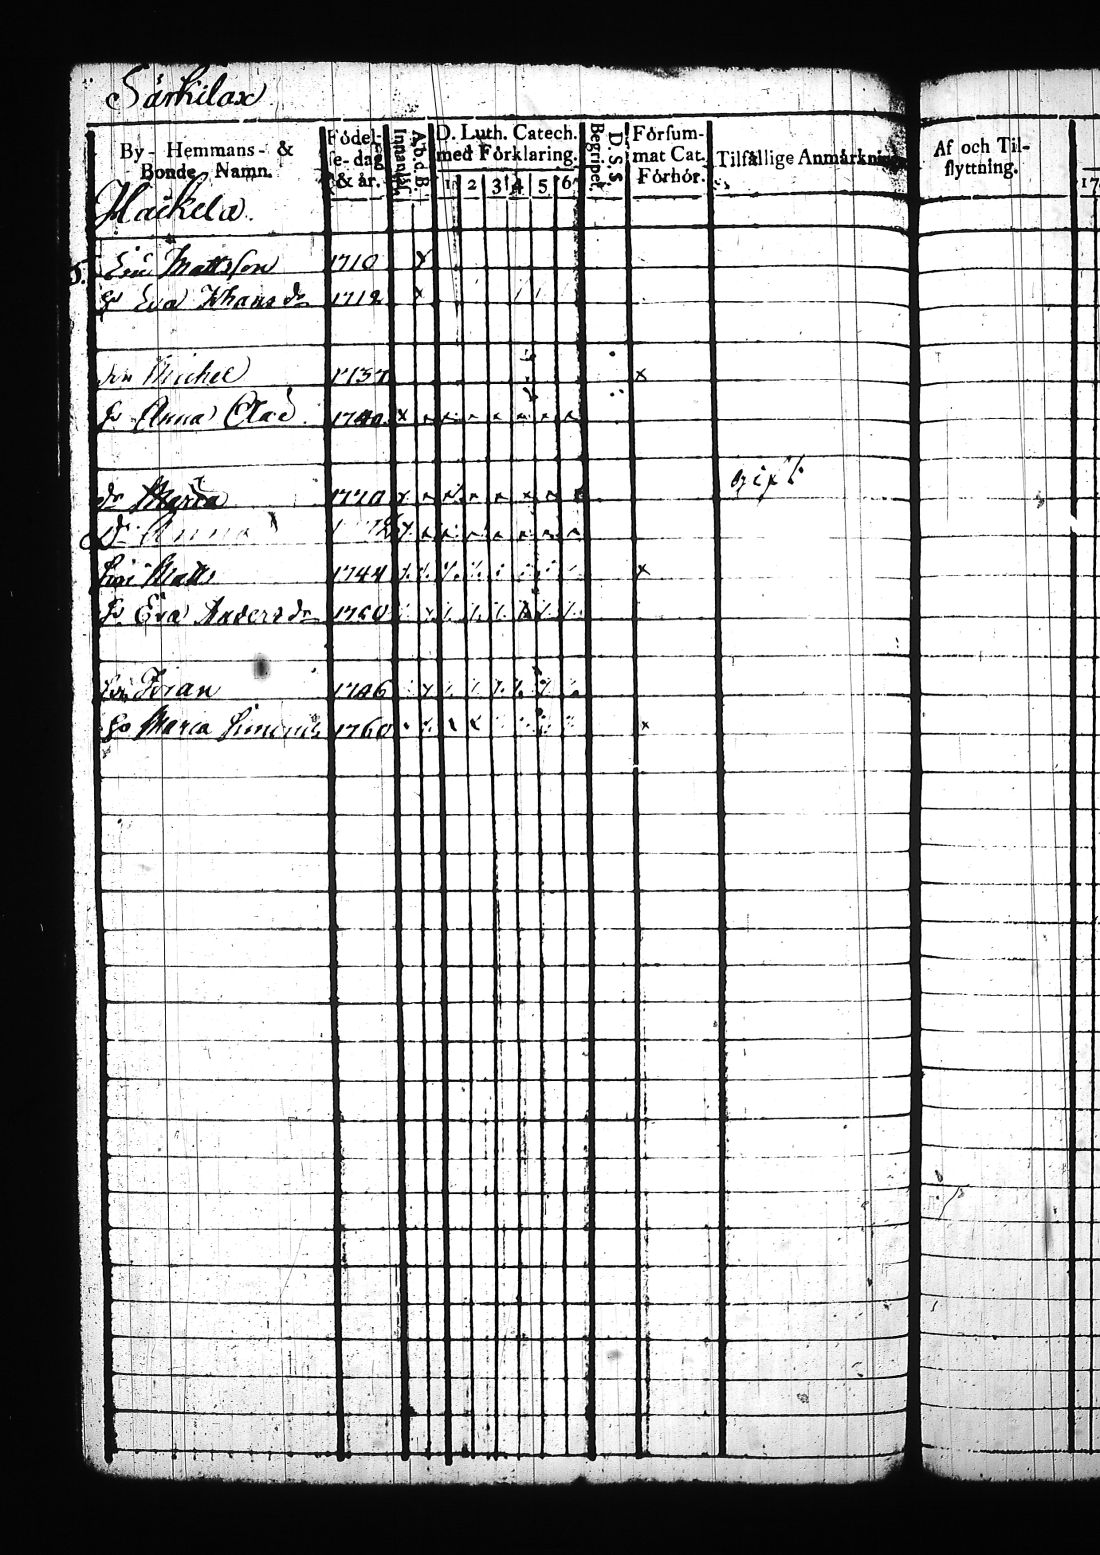 Särkilax
By- Hemmans- & Bonde Namn.
Födelse-dag & år.
Innanläs.
A.b.d.B.
D. Luth. Catech. med Förklaring.
1 2 3 4 5 6
Begripet.
D. S. S.
Försummat Cat. Förhör.
Tilfällige Anmärkning
Af och Tilflyttning.
17
Hackela.
5. Eric Mattsson 1710 x
h Eva Johans dr 1712 x
Son Michel 1737 x
h Anna Olad. 1740 x
dr Maria 1770 gift
Dr Anna
Son Matts 1744 x
h Eva Anders dr 1760
Son Jöran 1746
h Maria Simonsd 1760 x